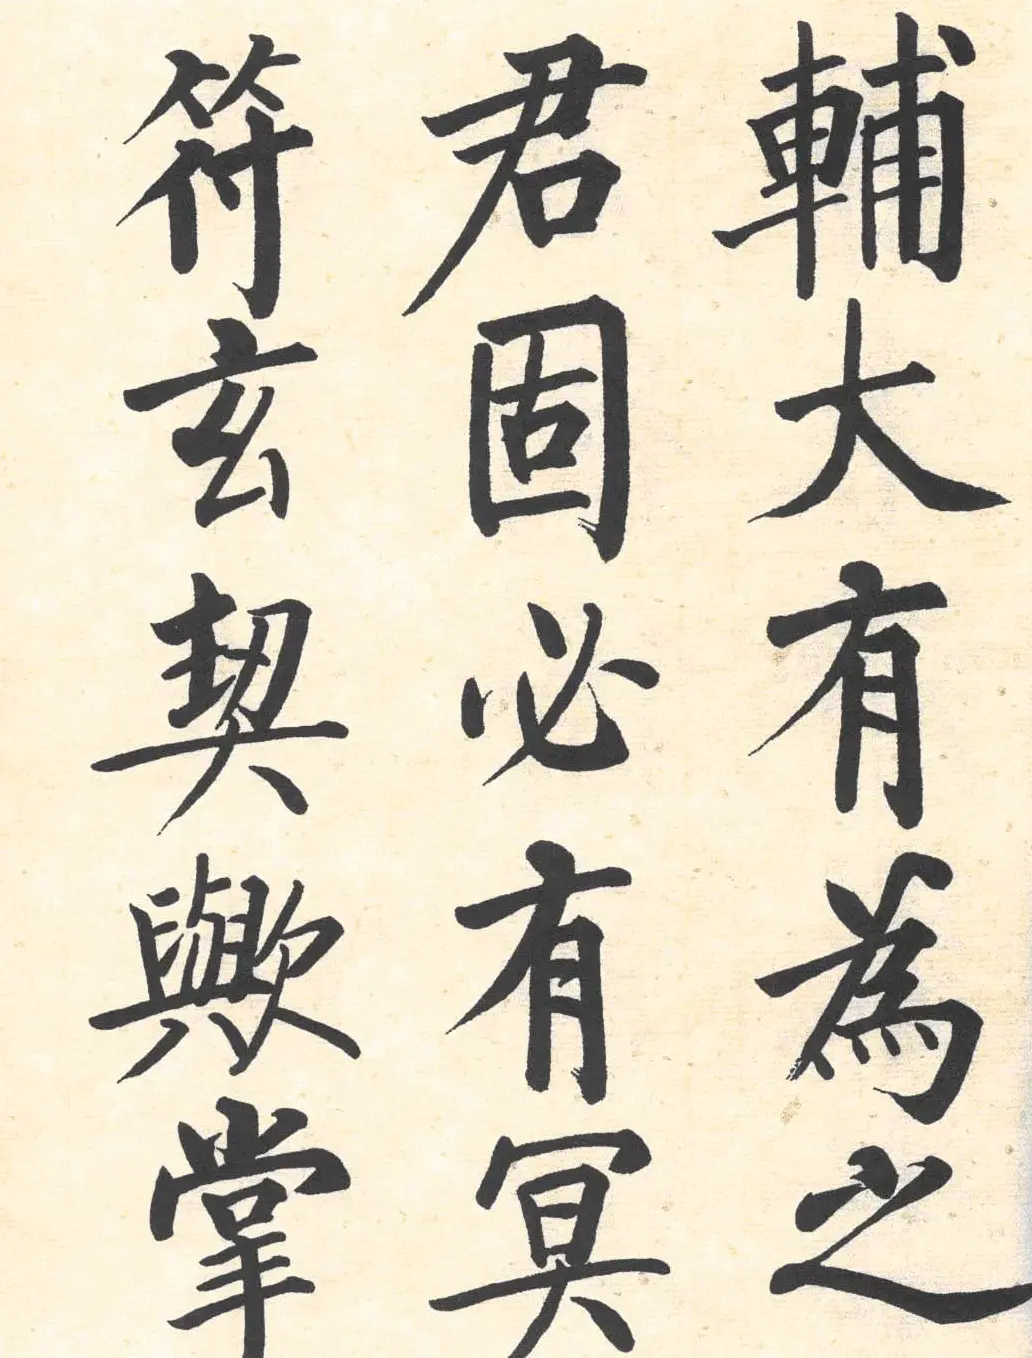 輔大有為之
君固必有冥
符玄契歟掌